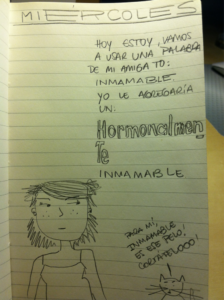 MIERCOLES
HOY ESTOY, VAMOS
A USAR UNA PALABRA
DE MI AMIGA TO:
INMAMABLE
YO LE AGREGARÍA
UN:
Hormonalmen
Te
INMAMABLE
PARA MÍ,
INMAMABLE
ES ESE PELO!
CORTATELOOO!